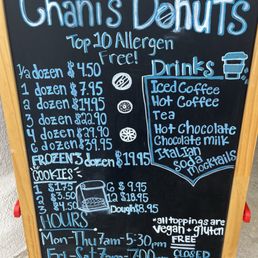 Chani's Donuts
Top 10 Allergen
Free!
1/2 dozen $4.50
1 dozen $7.95
2 dozen $14.95
3 dozen $22.90
4 dozen $29.90
6 dozen $39.95
FROZEN 3 dozen $19.95
COOKIES
1 $1.75 6 $9.95
2 $3.50 12 $18.95
3 $4.50 Dough $8.95
HOURS
Mon-Thu 7am-5:30pm
Fri-Sat 7am-7:00
Drinks
Iced Coffee
Hot Coffee
Tea
Hot Chocolate
Chocolate milk
Italian
Soda
Mocktails
*all toppings are
vegan + gluten
FREE
CLOSED